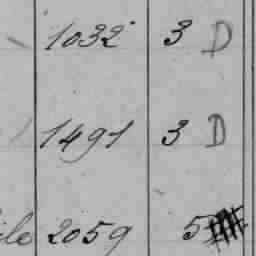 1032 3 D
1491 3 D
ile 2059 5